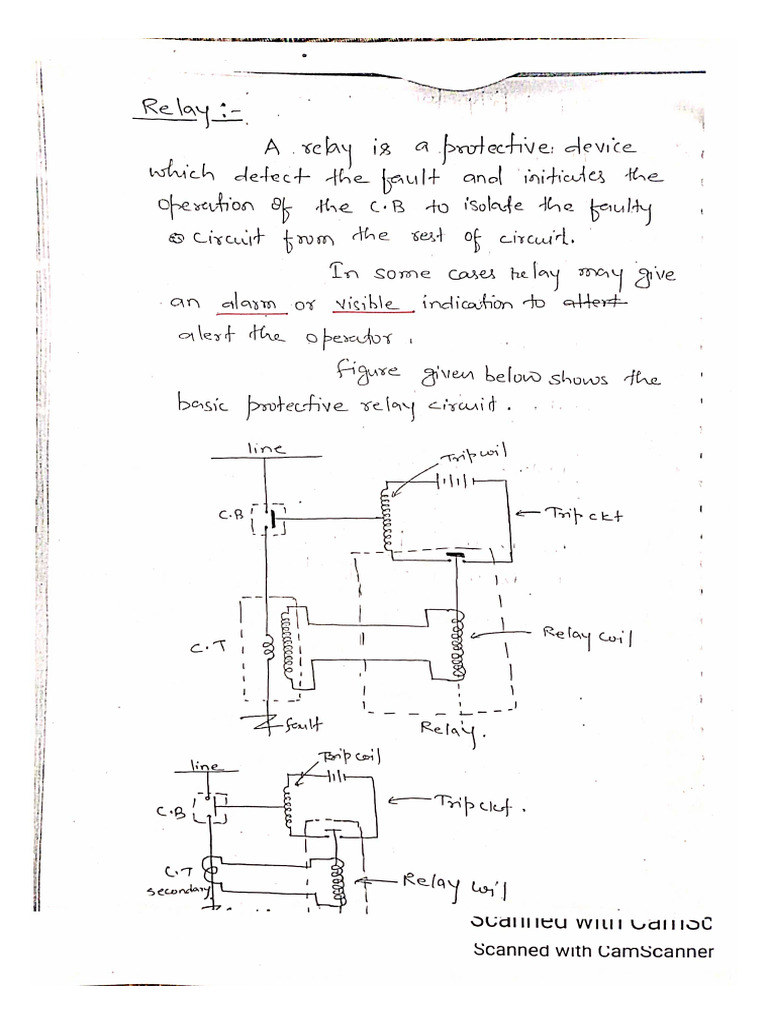 Relay :-
A relay is a protective device
which detect the fault and initicutes the
operation of the C.B to isolate the faulty
circuit from the rest of circuit.
In some cases relay may give
an alarm or visible indication to attert
alert the operator.
figure given below shows the
basic protective relay circuit.
line
Trip coil
C.B
Trip ckt
C.T
Relay coil
fault
Relay.
line
Trip coil
C.B
Trip ckt.
C.T
secondary
Relay coil
Scanned with CamSc
Scanned with CamScanner